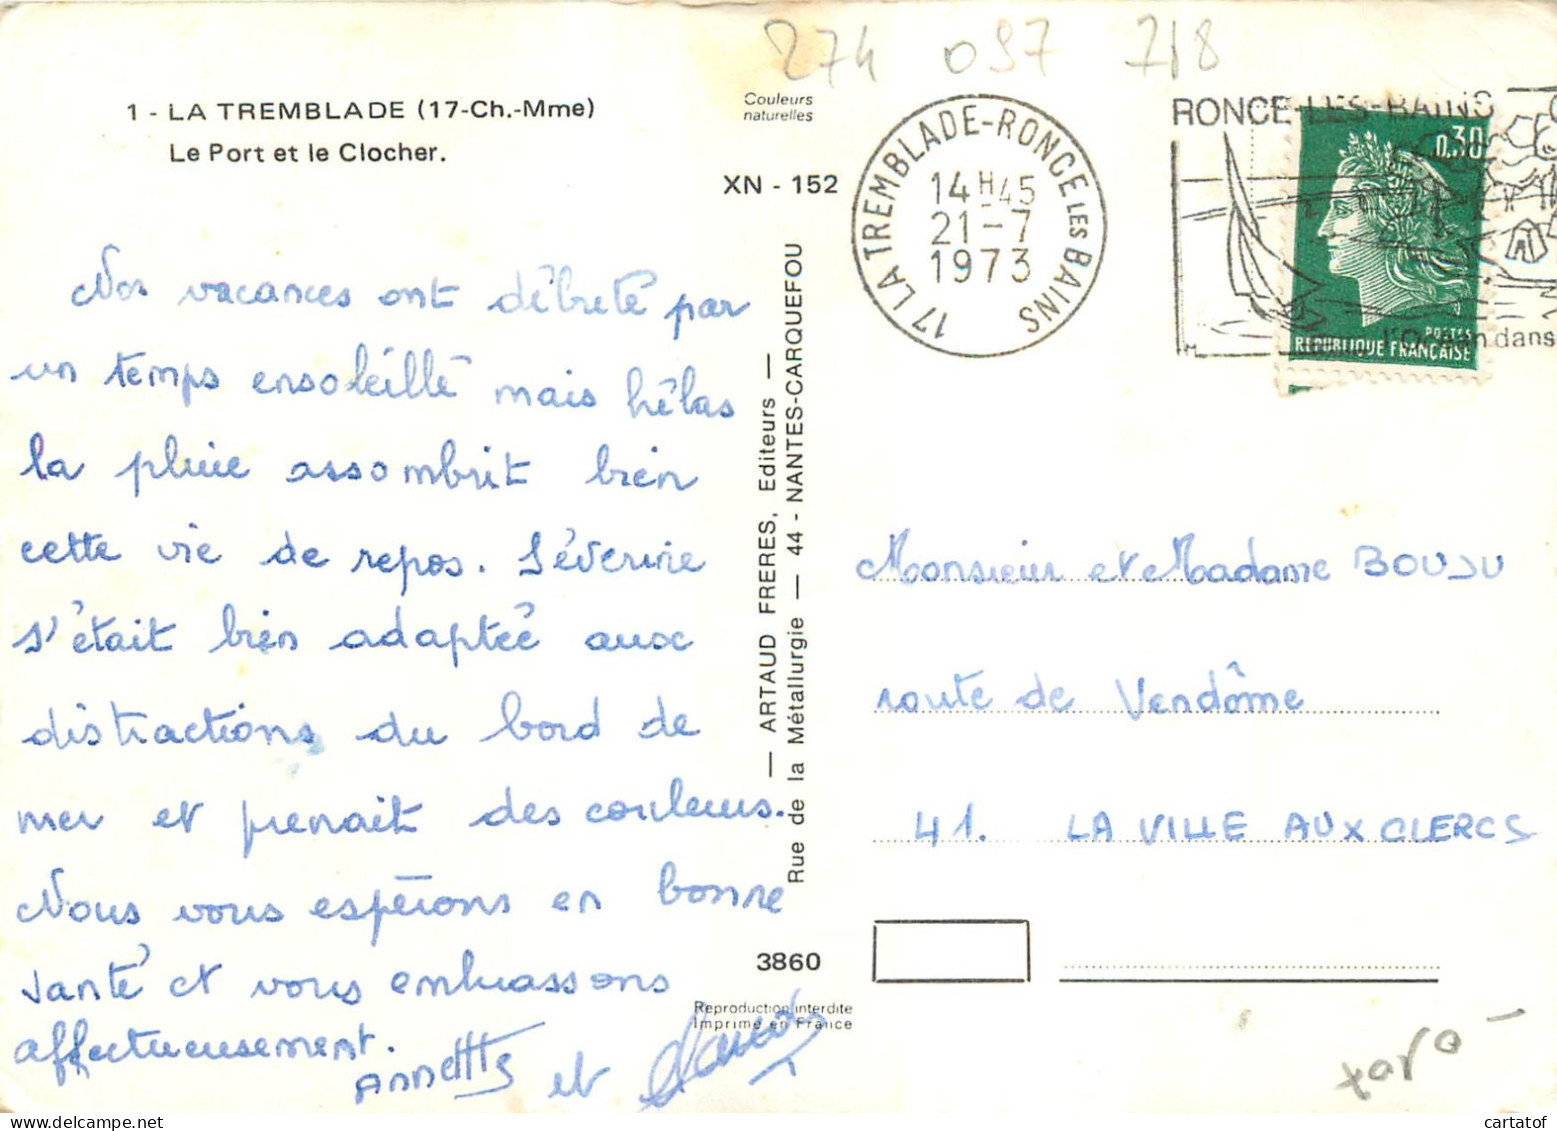 274 097 718
1 - LA TREMBLADE (17-Ch.-Mme)
Le Port et le Clocher.
Couleurs
naturelles
XN - 152
Nos vacances ont débuté par
un temps ensoleillé mais hélas
la pluie assombrit bien
cette vie de repos. Séverine
s'était bien adaptée aux
distractions du bord de
mer et prenait des couleurs.
Nous vous espérons en bonne
santé et vous embrassons
affectueusement.
Annette et
— ARTAUD FRERES, Editeurs —
Rue de la Métallurgie — 44 - NANTES-CARQUEFOU
3860
Reproduction interdite
Imprimé en France
17 LA TREMBLADE-RONCE LES BAINS
14H45
21-7
1973
RONCE-LES-BAINS
l'Océan dans
0,30
POSTES
REPUBLIQUE FRANÇAISE
Monsieur et Madame BOUJU
route de Vendôme
41. LA VILLE AUX CLERCS
cartatof